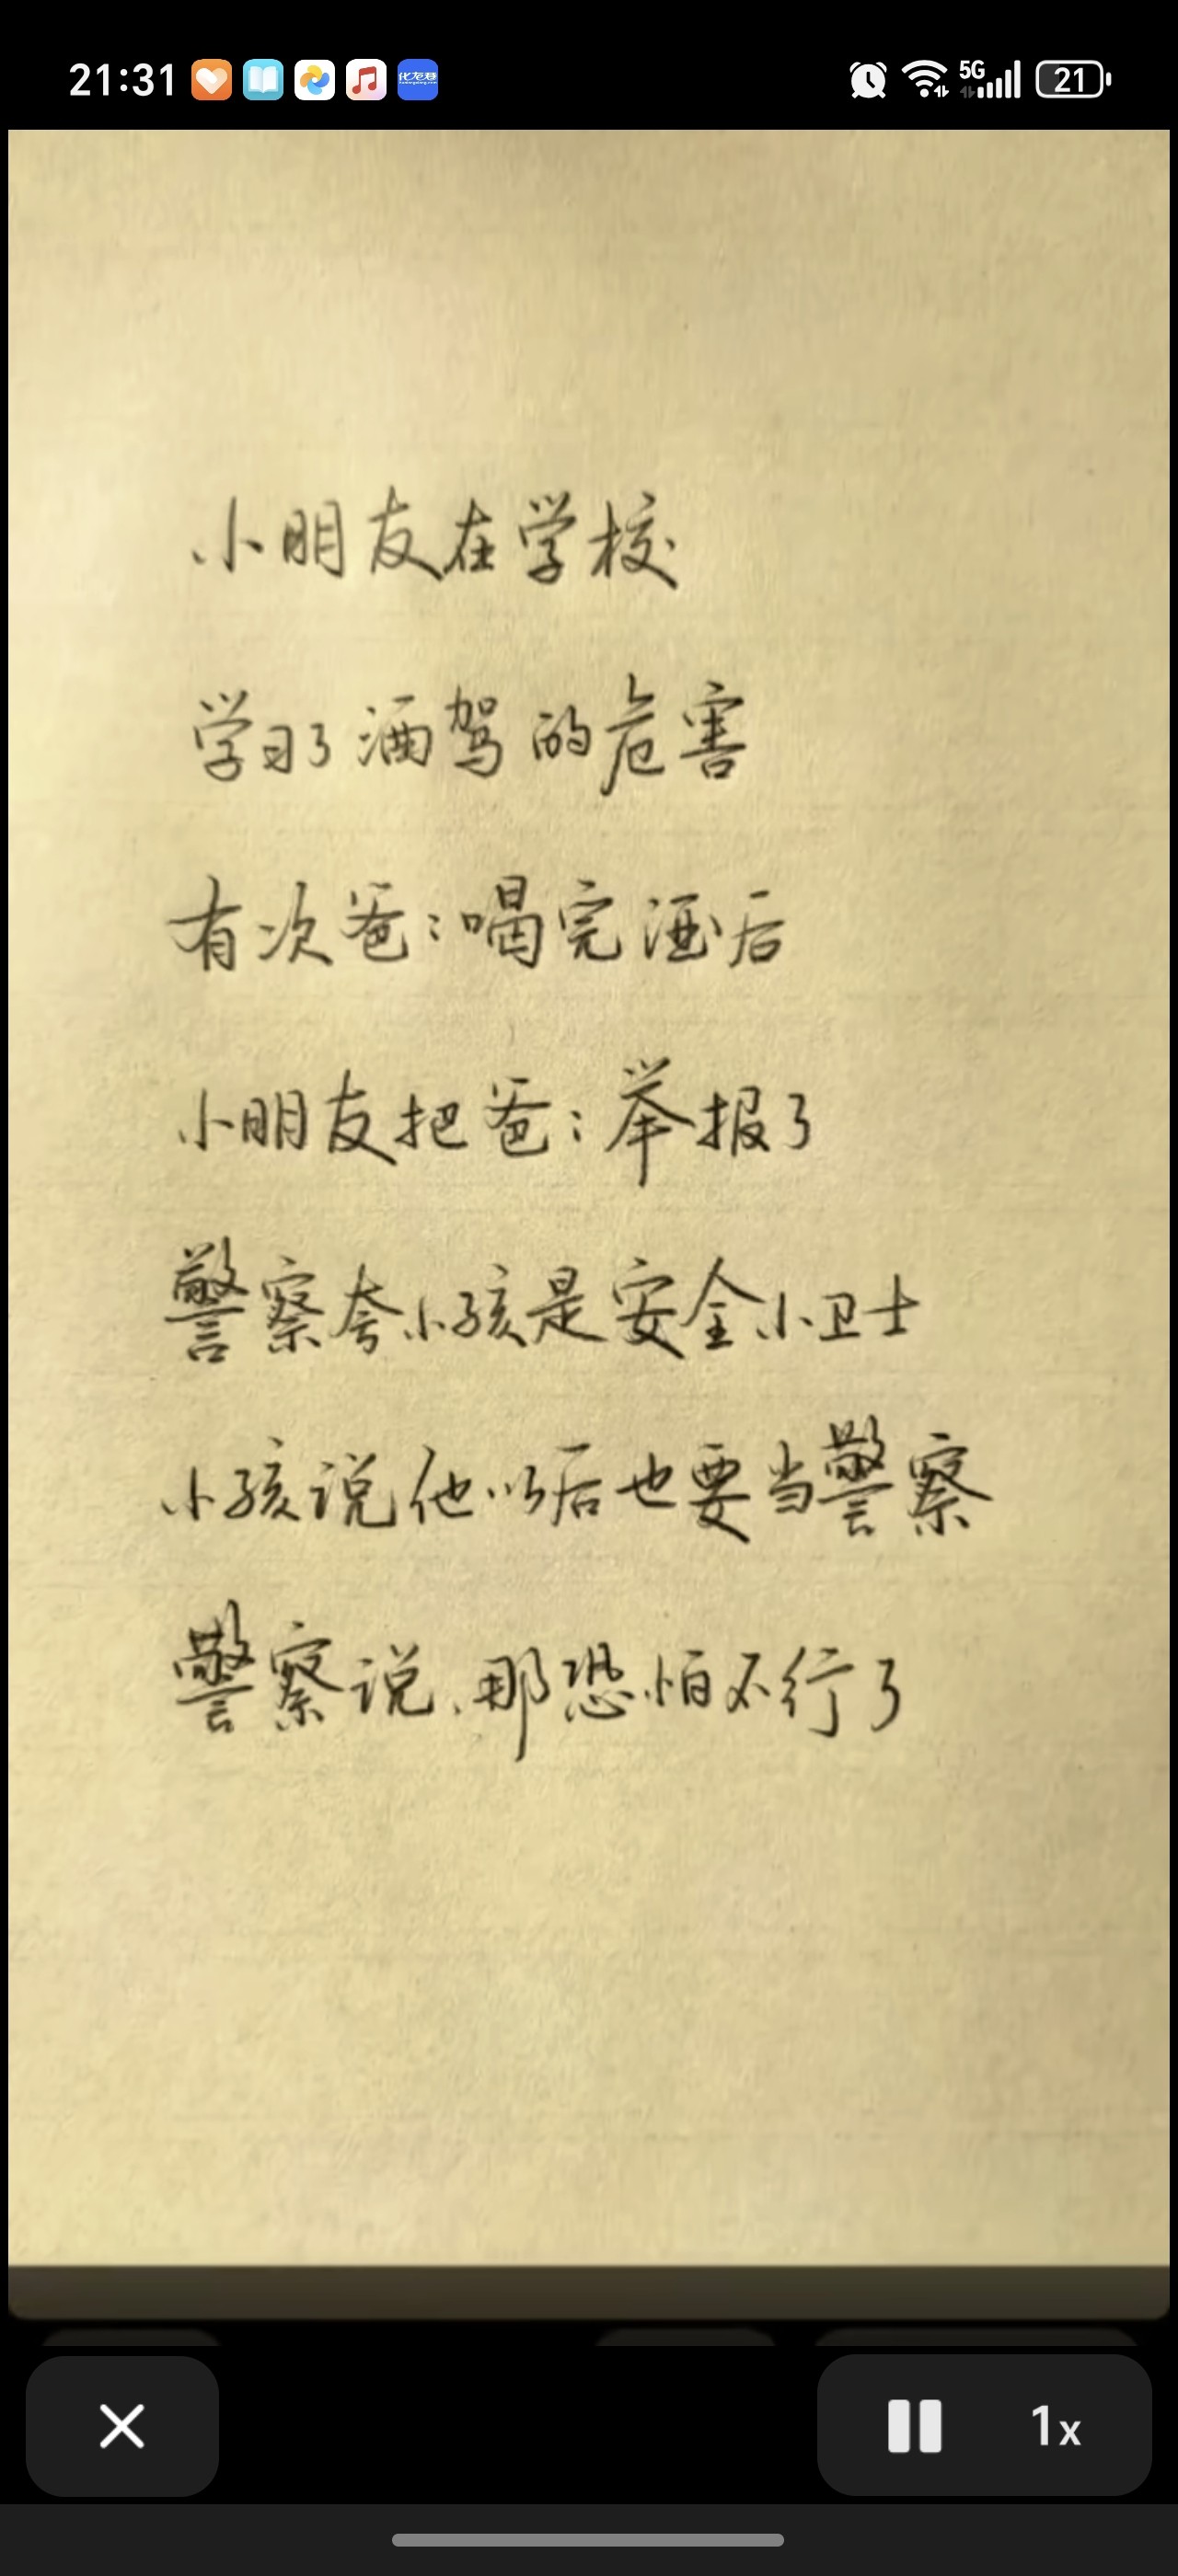 21:31 化龙巷 5G 21
小朋友在学校
学习了酒驾的危害
有次爸:喝完酒后
小朋友把爸:举报了
警察夸小孩是安全小卫士
小孩说他以后也要当警察
警察说,那恐怕不行了
1x